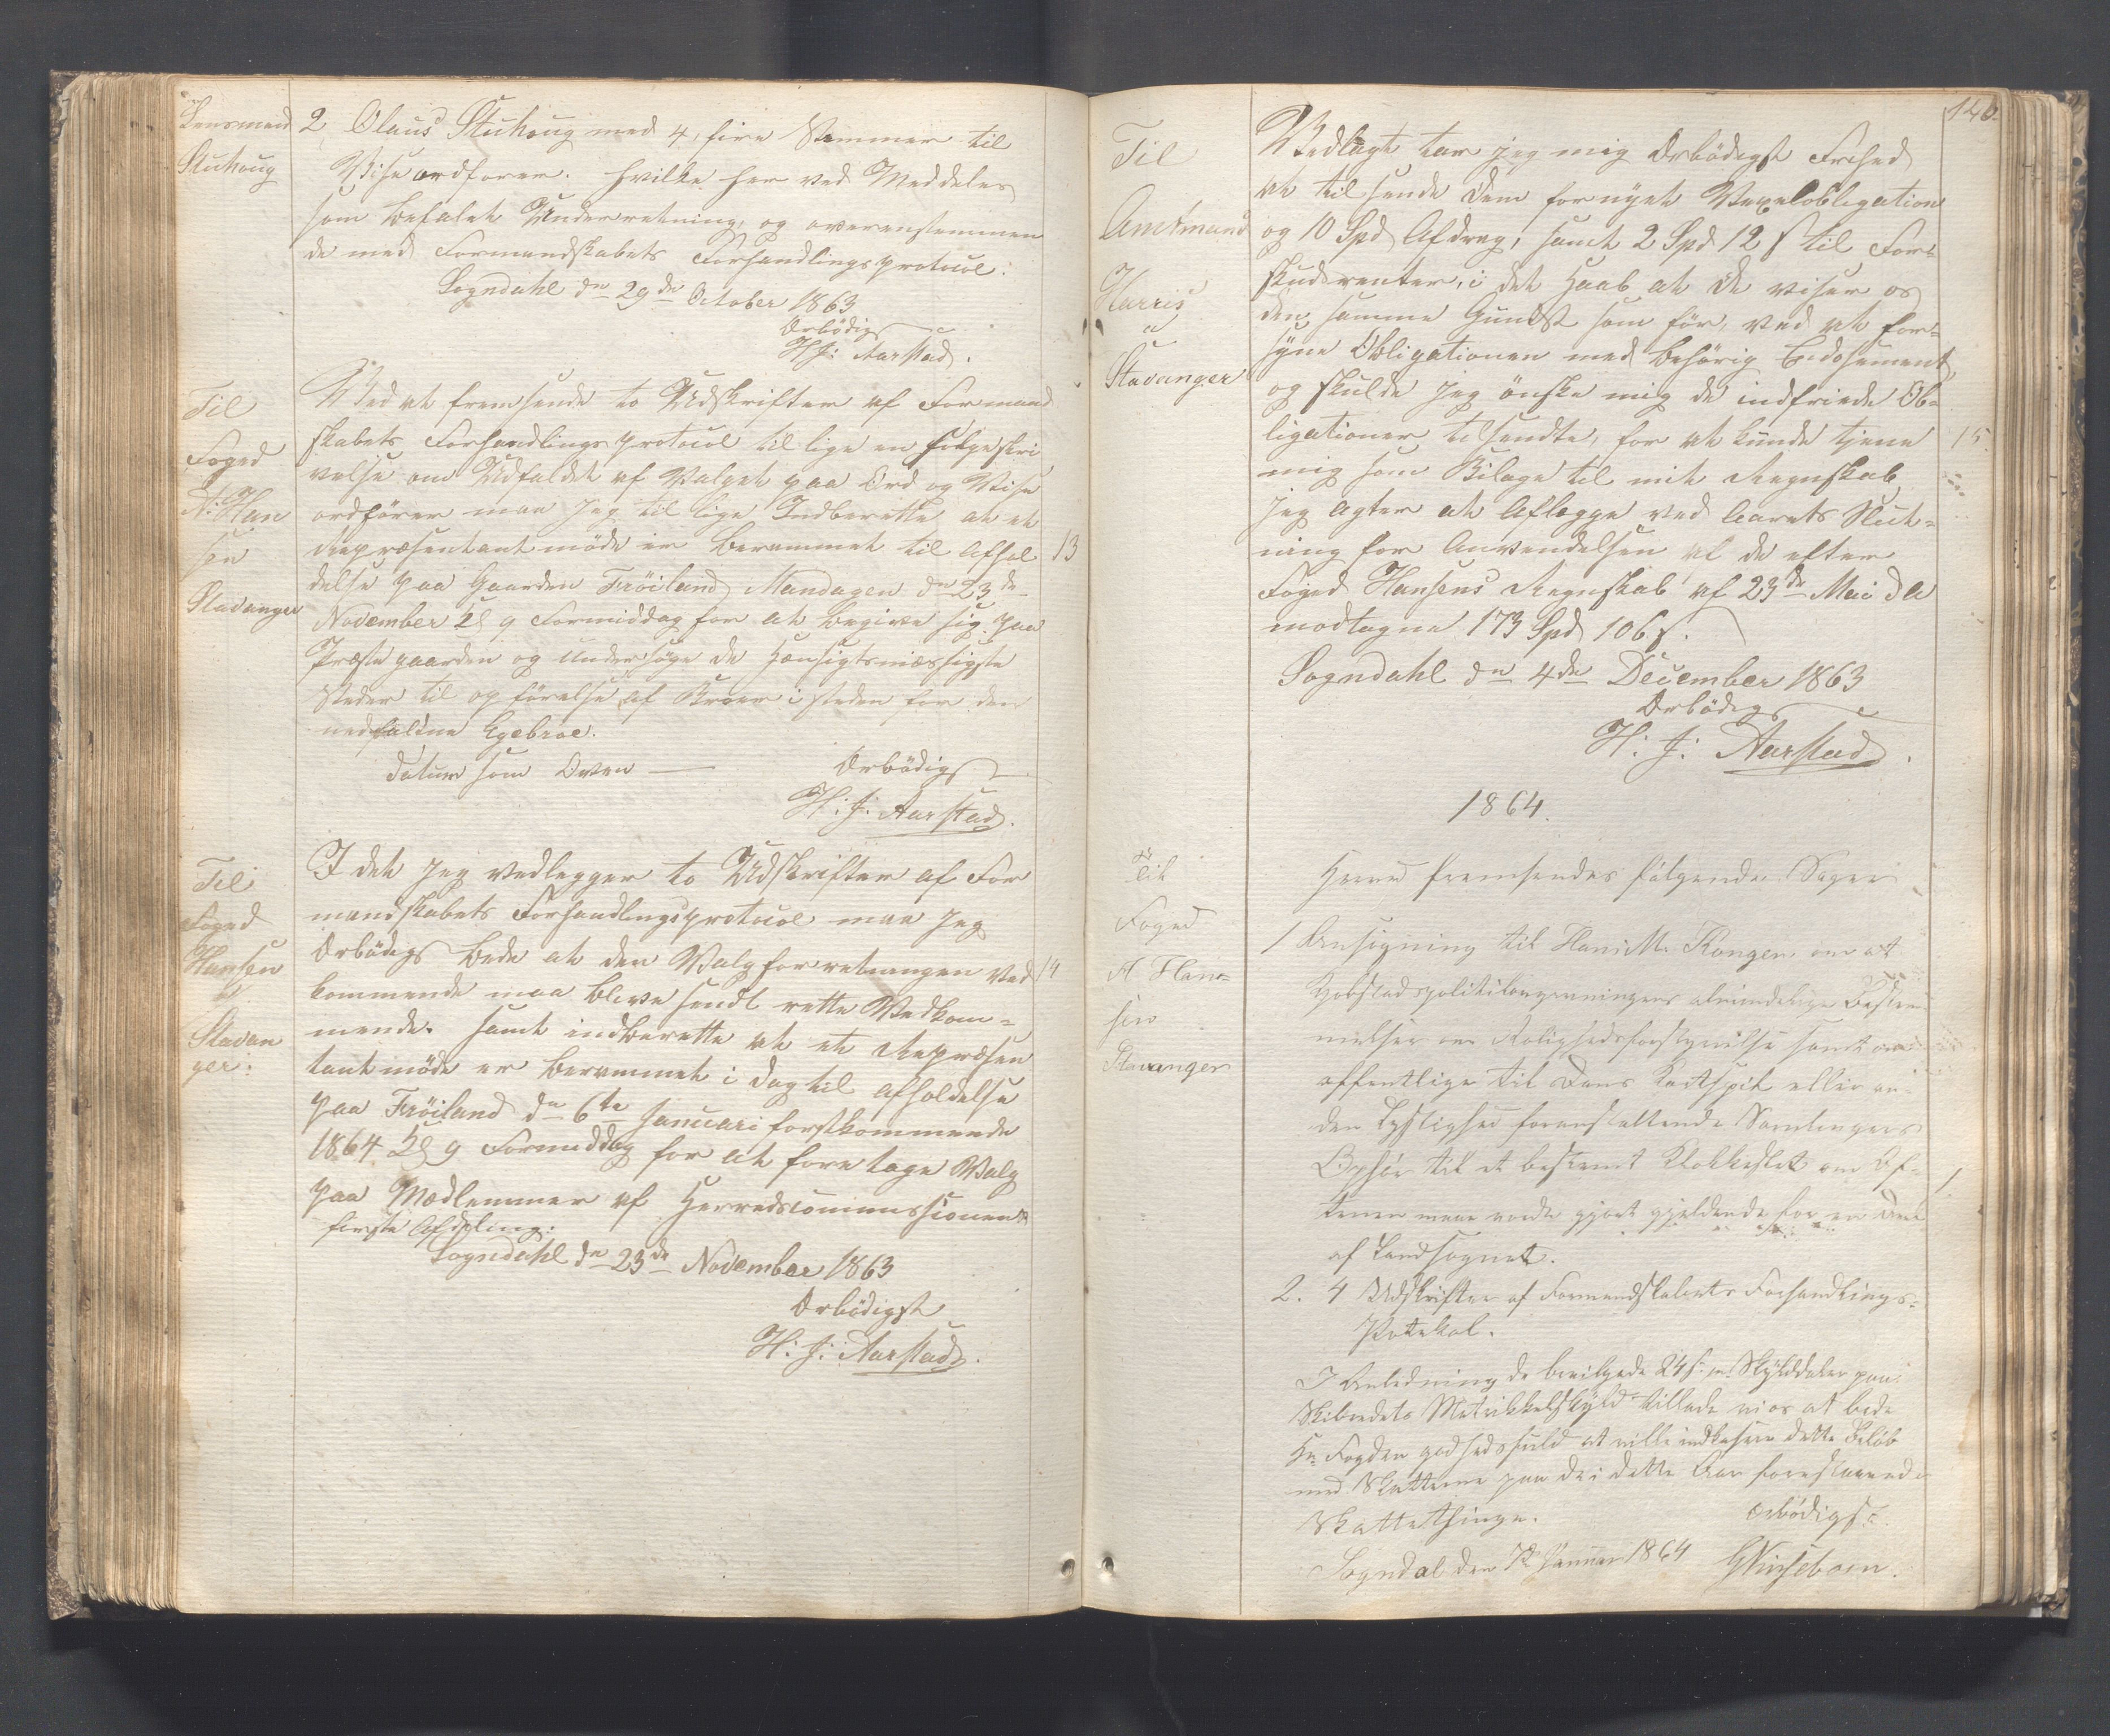 Lensmand
Stuhoug
2 Olaus Stuhoug med 4, fire Stemmer til
Viseordfører. hvilke her ved Meddeles
som befalet Underretning, og overenstemmen
de med Formandskabets Forhandlingsprotocol.
Sogndahl dn 29de October 1863
Ærbødigst
H. J: Aarstad.
Til
Foged
A: Han
sen
Stavanger
Ved at fremsende to Udskrifter af Formand
skabets Forhandlingsprotocol til lige en
velse om Udfaldet af Valget paa Ord og Vise
ordfører maa jeg til lige Indberette at et
Repræsentantmøde er berammet til Afhol
13
delse paa Gaarden Frøiland Mandagen dn 23de
November Kl 9 Formiddag for at begive sig paa
Præstegaarden og undersøge de Hensigtsmæssigste
Steder til opførelse af Broer i steden for den
nedfaldne Egebroe.
Datum som Oven — Ærbødigst
H: J: Aarstad.
Til
Foged
Hansen
i
Stavan
ger:
I det jeg vedlegger to Udskrifter af For
mandskabets Forhandlingsprotocol maa jeg
Ærbødigst bede at den Valgforretningen Ved
14
kommende maa blive sendt rette Vedkom=
mende. samt indberette at et Repræsen
tantmøde er berammet i Dag til afholdelse
paa Frøiland dn 6te Januari førstkommende
1864 Kl 9 Formiddag for at foretage Valg
paa Medlemmer af Herredscommissionens
første Afdeling:
Sogndahl dn 23de November 1863
Ærbødigst
H: J: Aarstad.
140.
Til
Amtmand
Harris
i
Stavanger
Vedlagt tar jeg mig Ærbødigst Frihed
at tilsende Dem fornyet Vexelobligation
og 10 Spd Afdrag, samt 2 Spd 12 s til For=
skudsrenter, i det Haab at De viser os
den samme Gunst som før, ved at for=
syne Obligationen med behørig Endosement,
og skulde jeg ønske mig de indfriede Ob=
ligationer tilsendte, for at kunde tjene
15
mig som Bilage til mit Regnskab
jeg agter at Aflægge ved Aarets Slut=
ning for Anvendelsen af de efter
Foged Hansens Regnskab af 23de Mai da
modtagne 173 Spd 106 s.
Sogndahl dn 4de December 1863
Ærbødigst
H: J: Aarstad.
1864.
Til
Foged
A Han=
sen
Stavanger
Herved fremsendes følgende Sager
1 Ansøgning til Hans M. Kongen om at
Kjøbstadspolitilovgivningens almindelige Bestem
melser om Rolighedsforstyrrelse samt om
offentlige til Dans Kortspil eller an=
den Lystighed foranstaltende Samlingers
Ophør til et bestemt Klokkeslet om Af=
1.
tenen maa vorde gjort gjeldende for en Deel
af Landsognet.
2. 4 Udskrifter af Formandskabets Forhandlings=
Protokol.
I Anledning de bevilgede 24 s pr. Skylddaler paa
Skibredets Matrikkelskyld tillade vi os at bede
Hr. Fogden godhedsfuld at ville indkassere dette Beløb
med Skatterne paa de i dette Aar forestaaende
Skattethinge. Ærbødigst
Sogndal den 7de Januar 1864